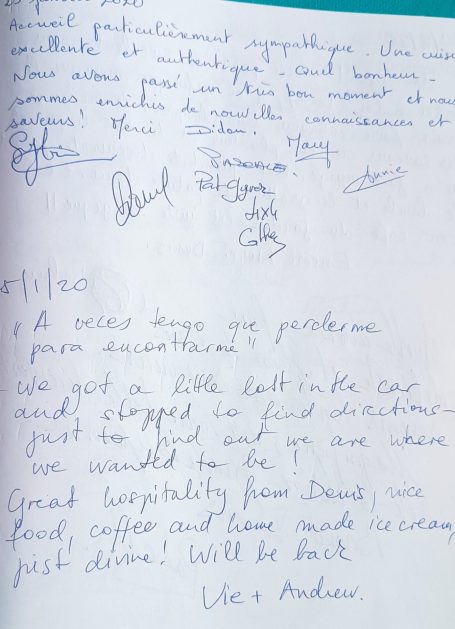 2020
Accueil particulièrement sympathique. Une cuis
excellente et authentique - Quel bonheur -
Nous avons passé un très bon moment et nou
sommes enrichis de nouvelles connaissances et
saveurs! Merci Didon. Mary
Sylvie
PASCALE. Annie
5/1/20
"A veces tengo que perderme
para encontrarme"
- We got a little lost in the car
and stopped to find directions -
just to find out we are where
we wanted to be!
Great hospitality from Denis, nice
food, coffee and home made ice cream,
just divine! Will be back
Vie + Andrew.